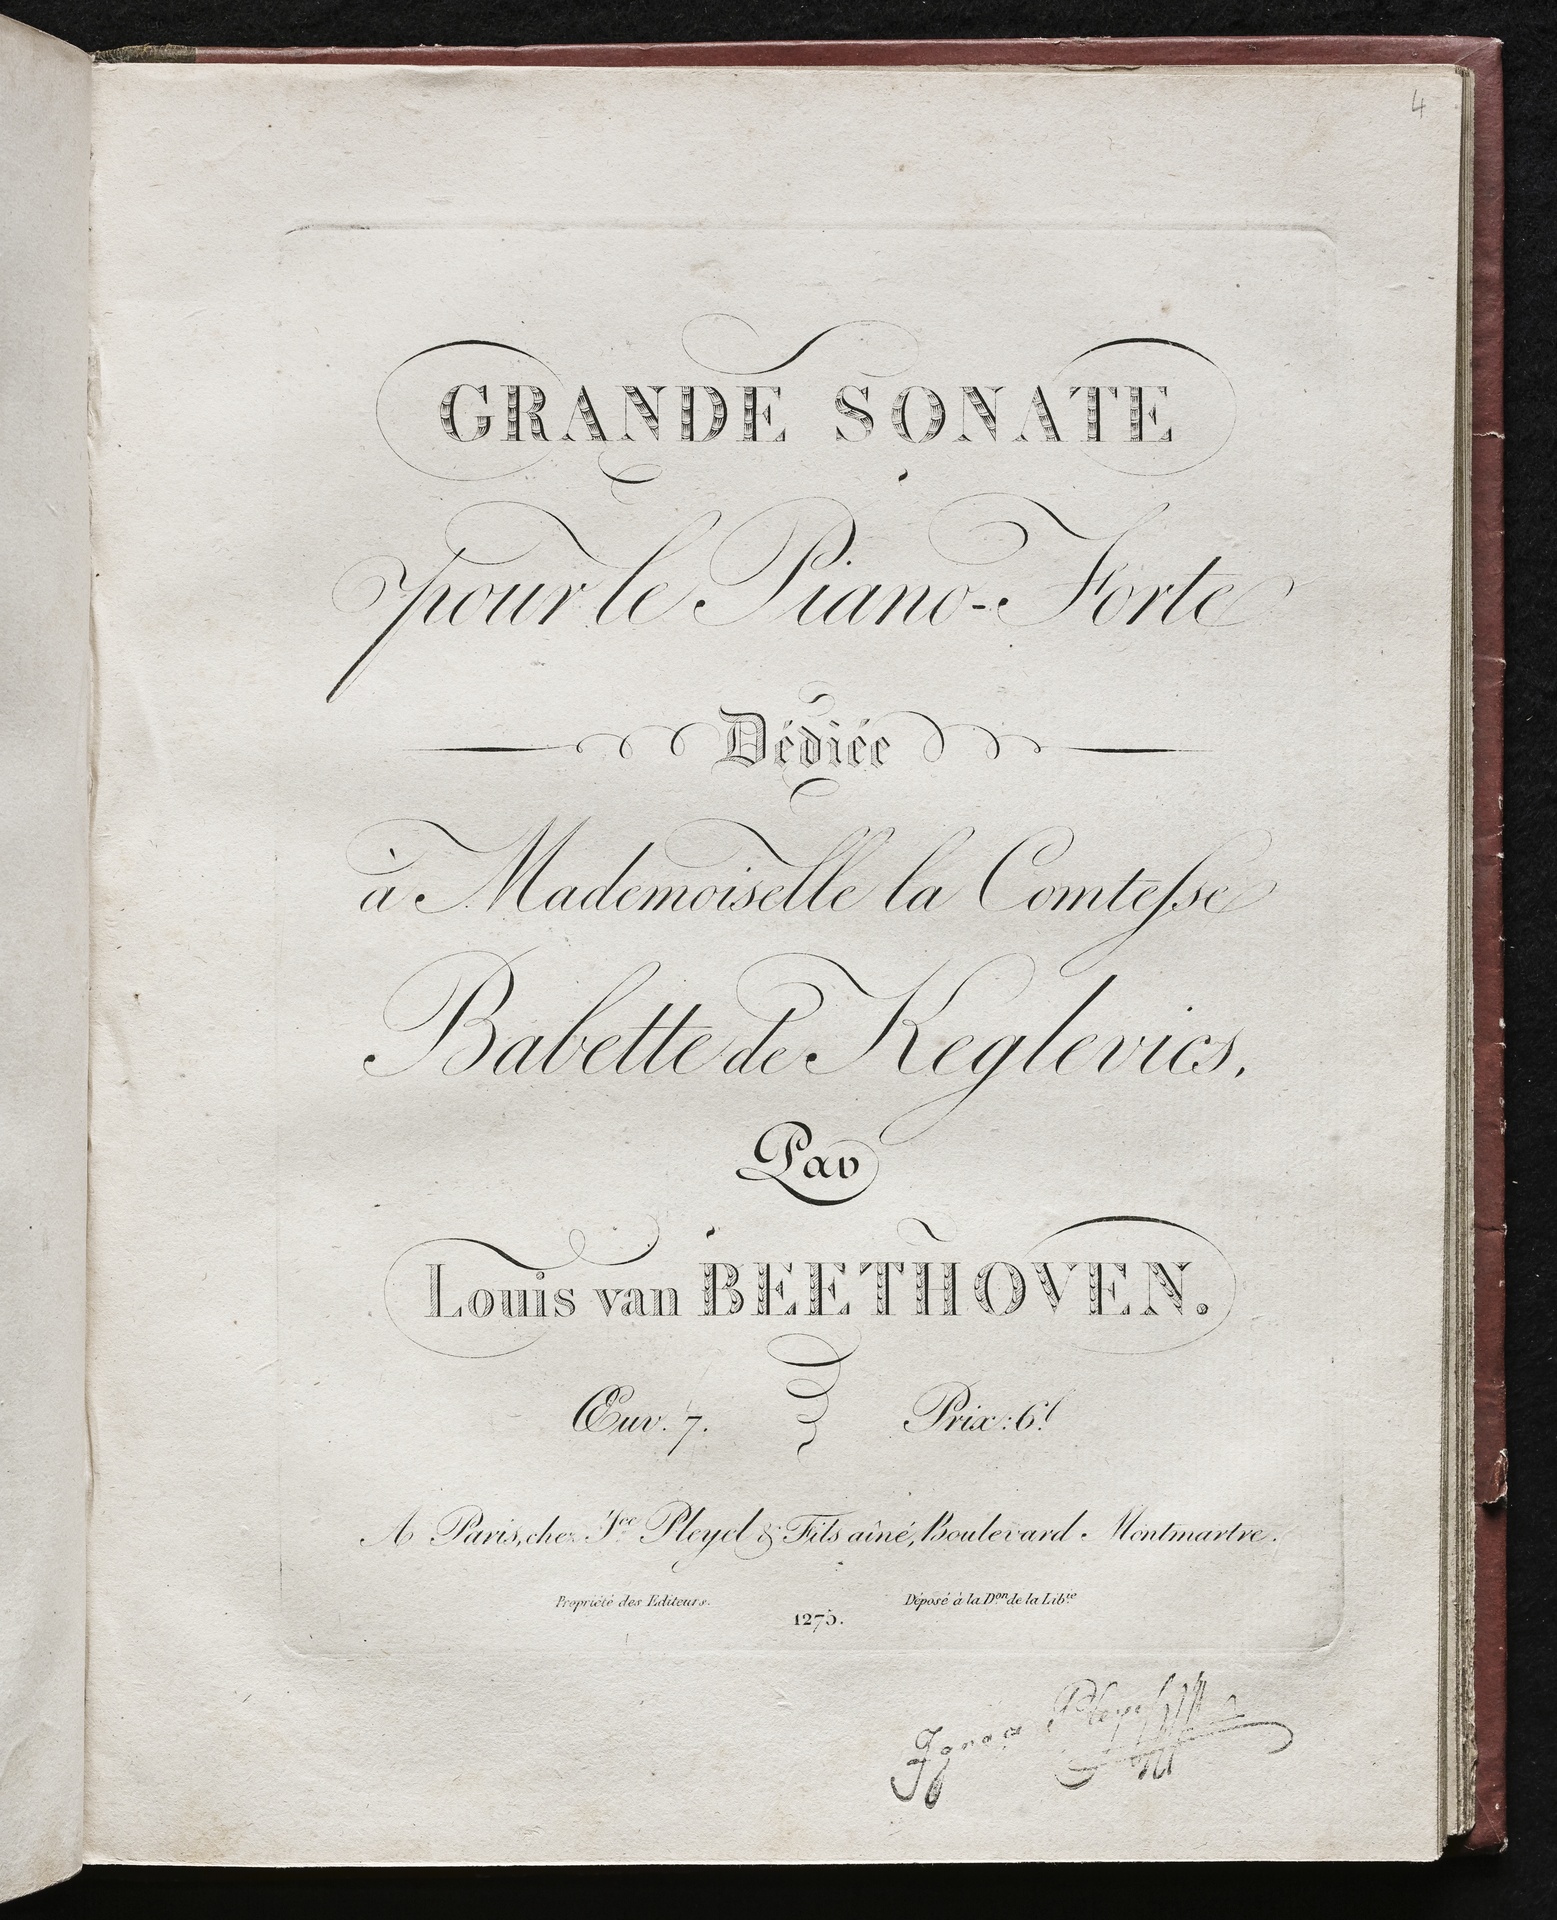 4
GRANDE SONATE
pour le Piano-Forte
Dédiée
à Mademoiselle la Comtesse
Babette de Keglevics,
Par
Louis van BEETHOVEN.
Œuv. 7. Prix: 6.f
A Paris, chez I.ce Pleyel & Fils aîné, Boulevard Montmartre.
Propriété des Editeurs. Déposé à la D.on de la Lib.ie
1275.
Ignace Pleyel